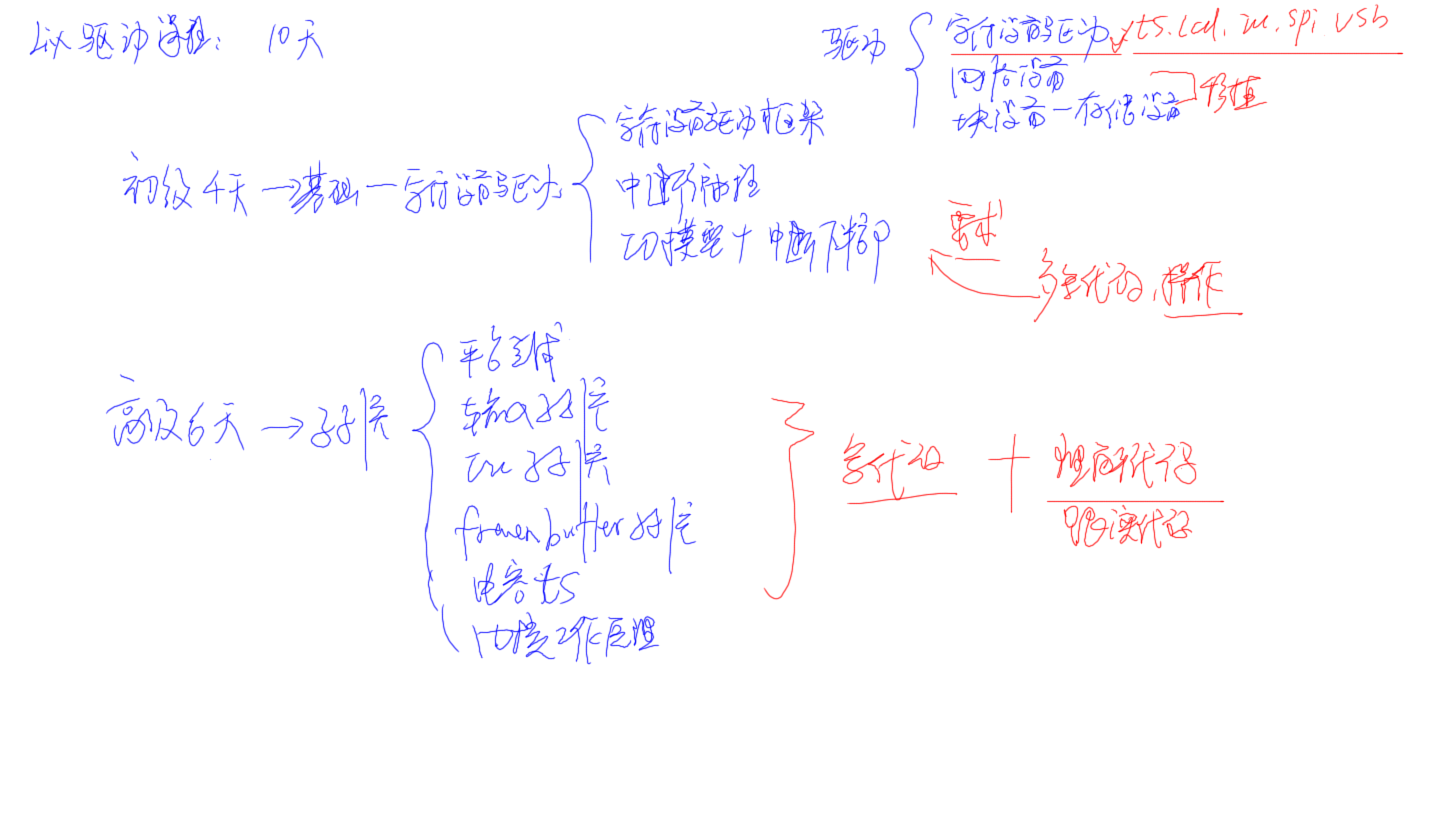 驱动课程: 10天
驱动
字符设备驱动 ts.lcd. iic.spi usb
网络设备
块设备-存储设备 移植
初级4天→基础-字符设备驱动
字符设备驱动框架
中断编程
IO模型+中断下半部
要求
多写代码,操作
高级6天→子系统
平台总线
输入子系统
iic子系统
framenbuffer子系统
电容ts
内核工作原理
写代码 + 理解代码
阅读代码